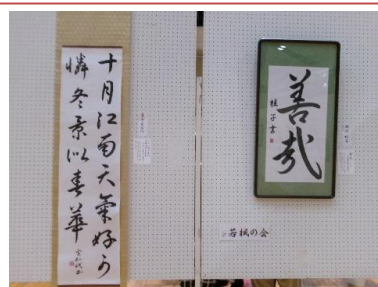 十月江南天氣好可
憐冬景似春華
善哉
桂子書
若楓の会